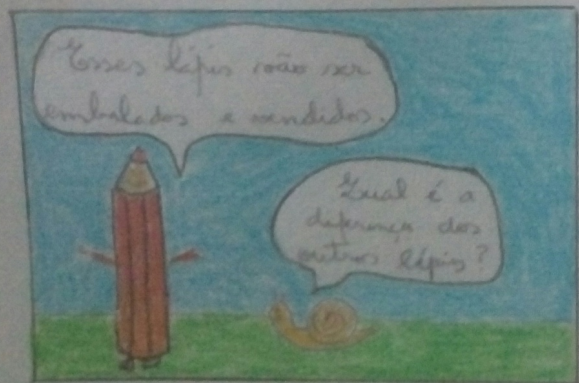 Esses lápis vão ser
embalados e vendidos.
Qual é a
diferença dos
outros lápis?